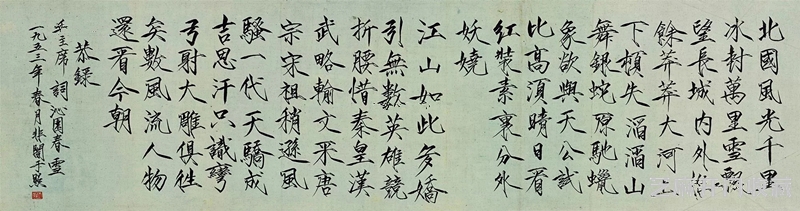 北國風光千里
冰封萬里雪飄
望長城內外惟
餘莽莽大河上
下頓失滔滔山
舞銀蛇原馳蠟
象欲與天公試
比高須晴日看
紅裝素裹分外
妖嬈
江山如此多嬌
引無數英雄競
折腰惜秦皇漢
武略輸文采唐
宗宋祖稍遜風
騷一代天驕成
吉思汗只識彎
弓射大雕俱往
矣數風流人物
還看今朝
恭錄
毛主席詞沁園春雪
一九五三年春月張